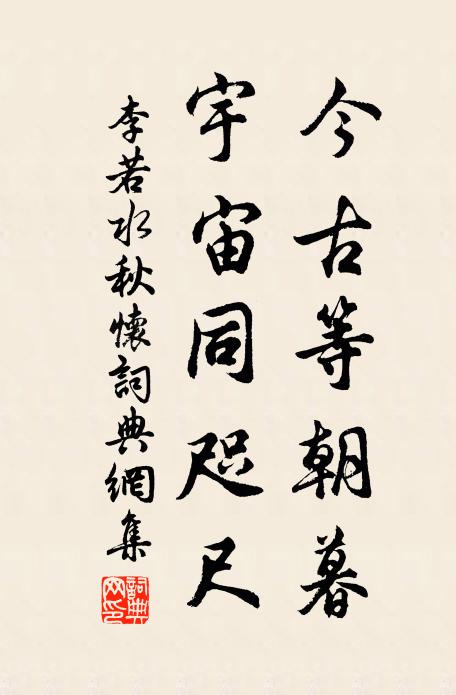 今古等朝暮
宇宙同咫尺
李若水秋懷詞典網集
詞典網印